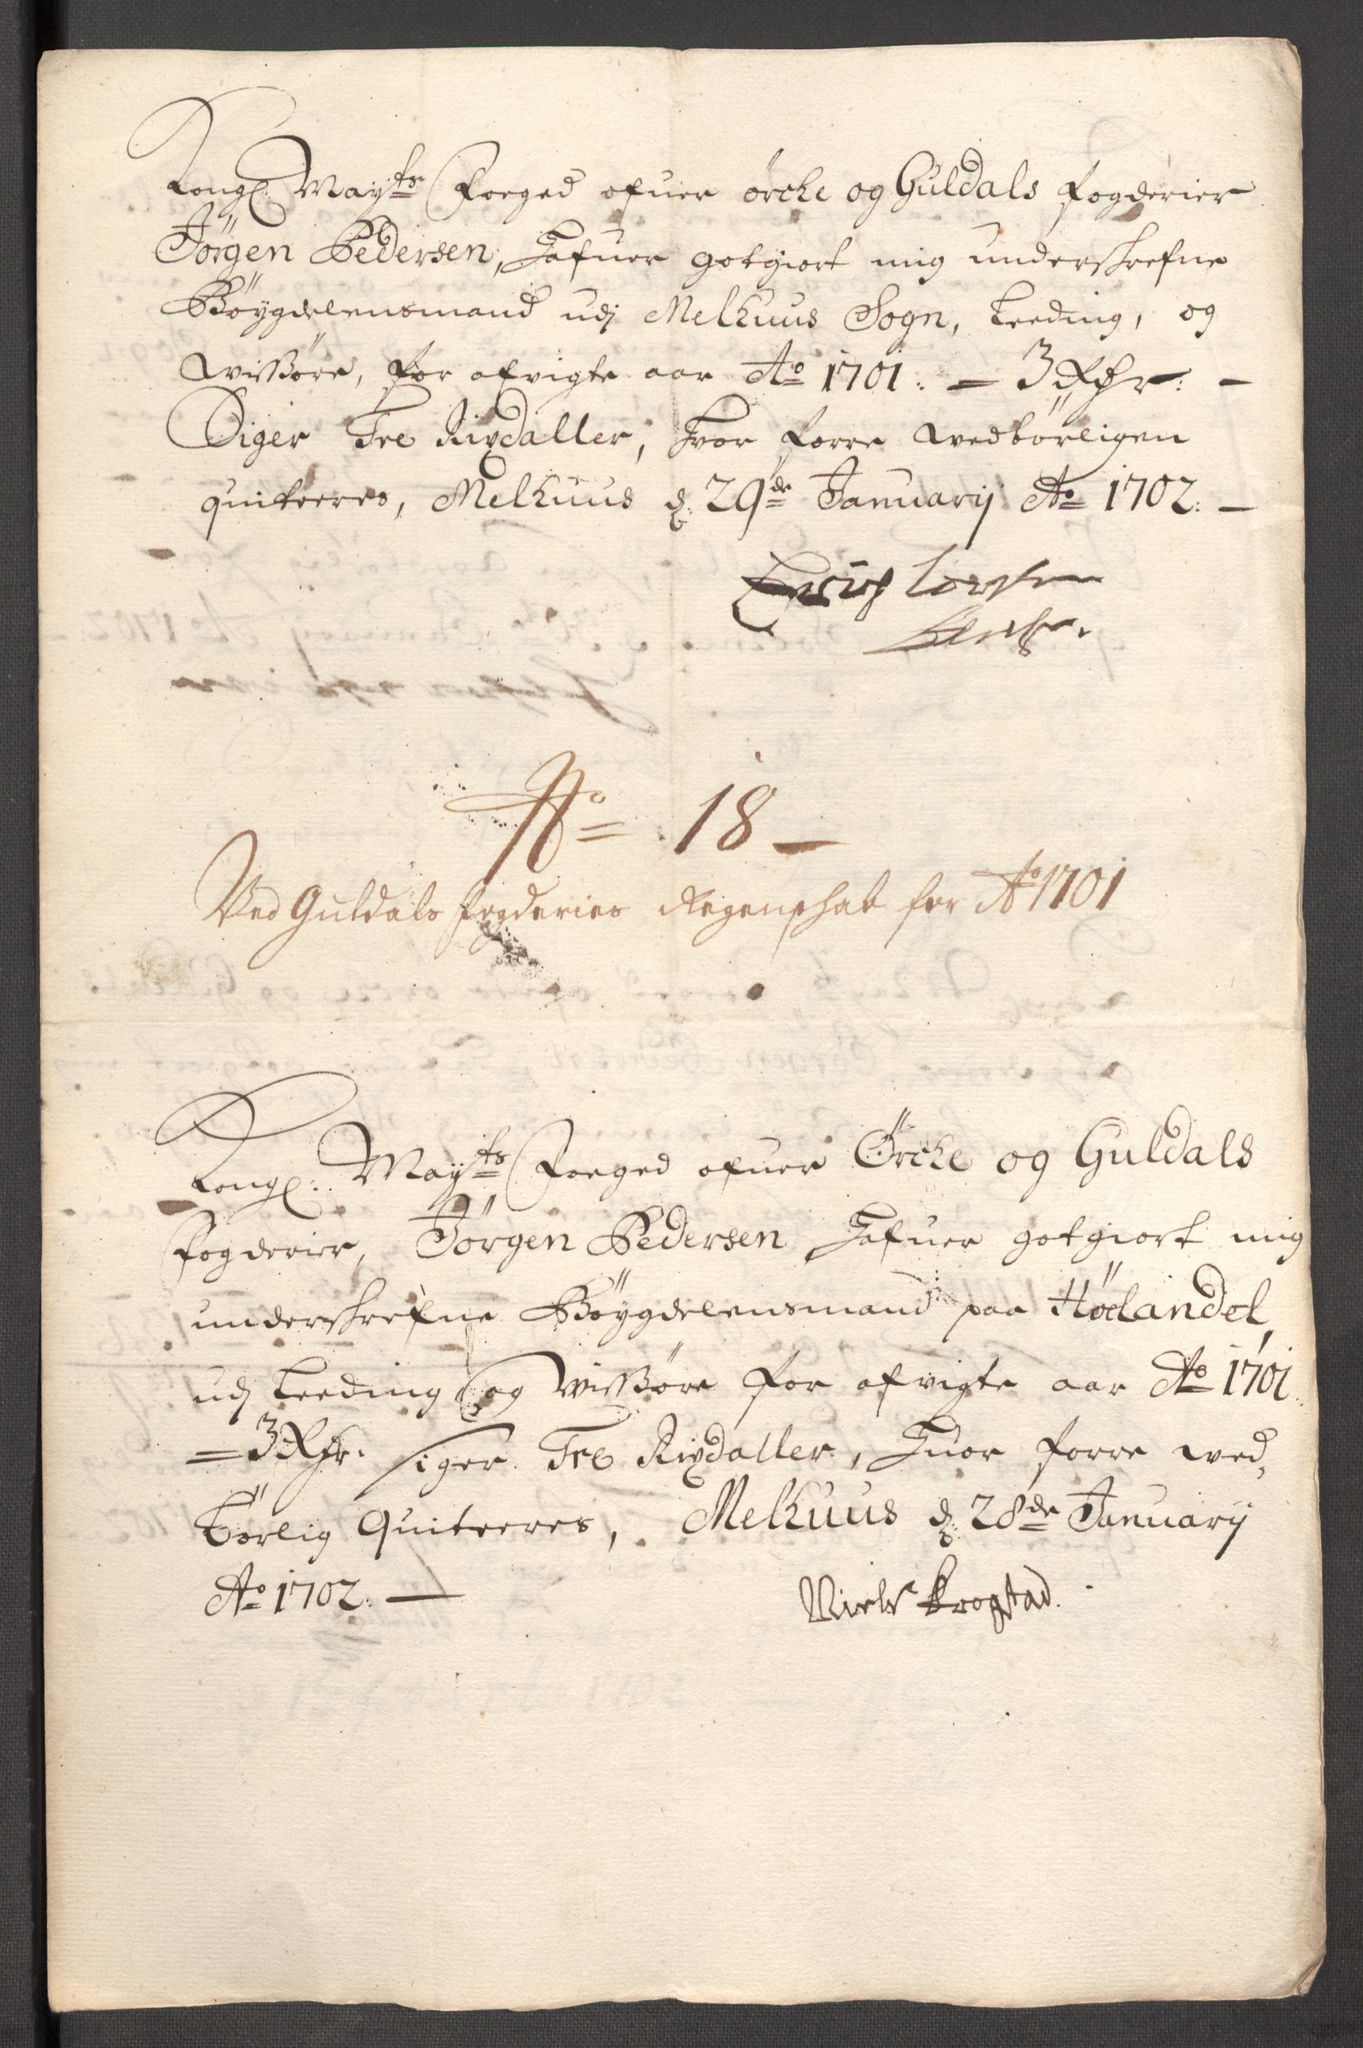 Kongl: Mayts Foeged ofuer örcke og Guldals fogderier
Jörgen Pedersen, Hafuer gotgiort mig underskrefne
Böygdelensmand udj Melhuus Sogn, Leeding, og
Wissöre, for afvigte aar Ao 1701: — 3 Rdr: —
Siger Tre Rixdaller, Hvor forre Wedbörligen
quiteeres, Melhuus d: 29de Januarij Ao 1702: —
No 18 —
Ved Guldals fogderies Regenskab for Ao 1701
Kongl: Mayts Foeged ofuer Örcke og Guldals
fogderier, Jörgen Pedersen Hafuer gotgiort mig
underskrefne Böygdelensmand paa Hölandet,
udj Leeding og Wissöre for afvigte aar Ao 1701
— 3 Rdr. siger Tre Rixdaller, Huor forre Wed,
börlig Quiteeres, Melhuus d: 28de Januarij
Ao 1702: —
Niels Krogstad.